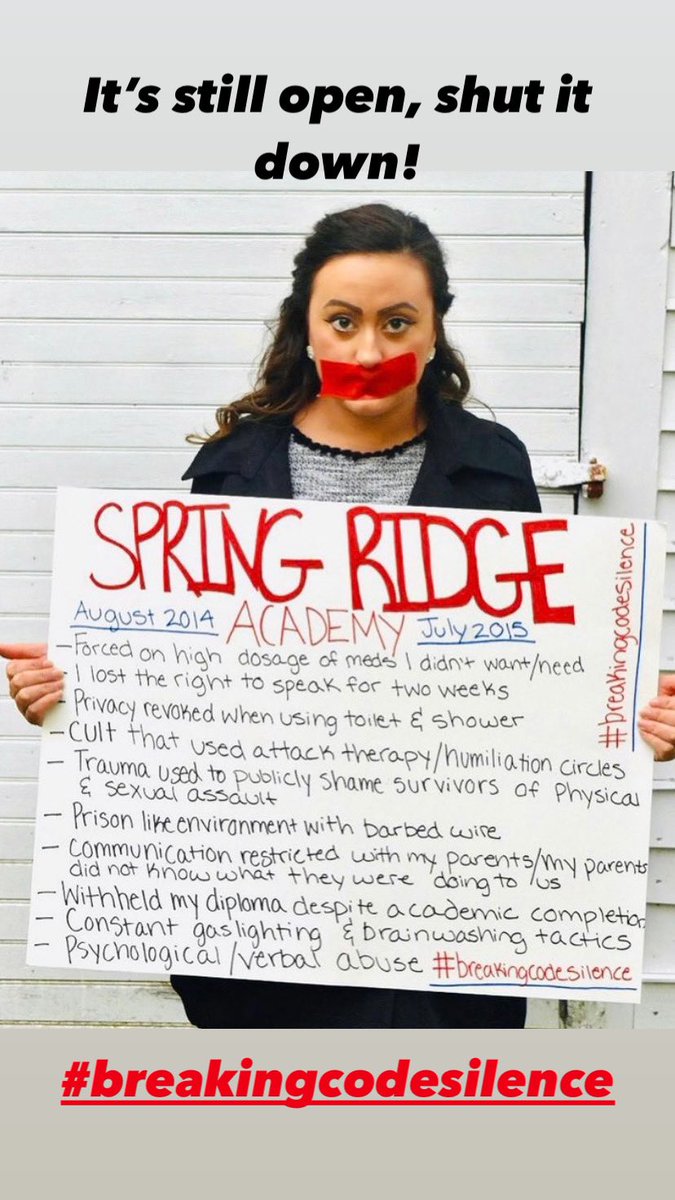 It's still open, shut it
down!
SPRING RIDGE
August 2014 ACADEMY July 2015
- Forced on high dosage of meds I didn't want/need
- I lost the right to speak for two weeks
- Privacy revoked when using toilet & shower
- Cult that used attack therapy/humiliation circles
- Trauma used to publicly shame survivors of Physical
& sexual assault
- Prison like environment with barbed wire
- Communication restricted with my parents/my parents
did not know what they were doing to us
- Withheld my diploma despite academic completion
- Constant gaslighting & brainwashing tactics
- Psychological/verbal abuse #breakingcodesilence
#breakingcodesilence
#breakingcodesilence